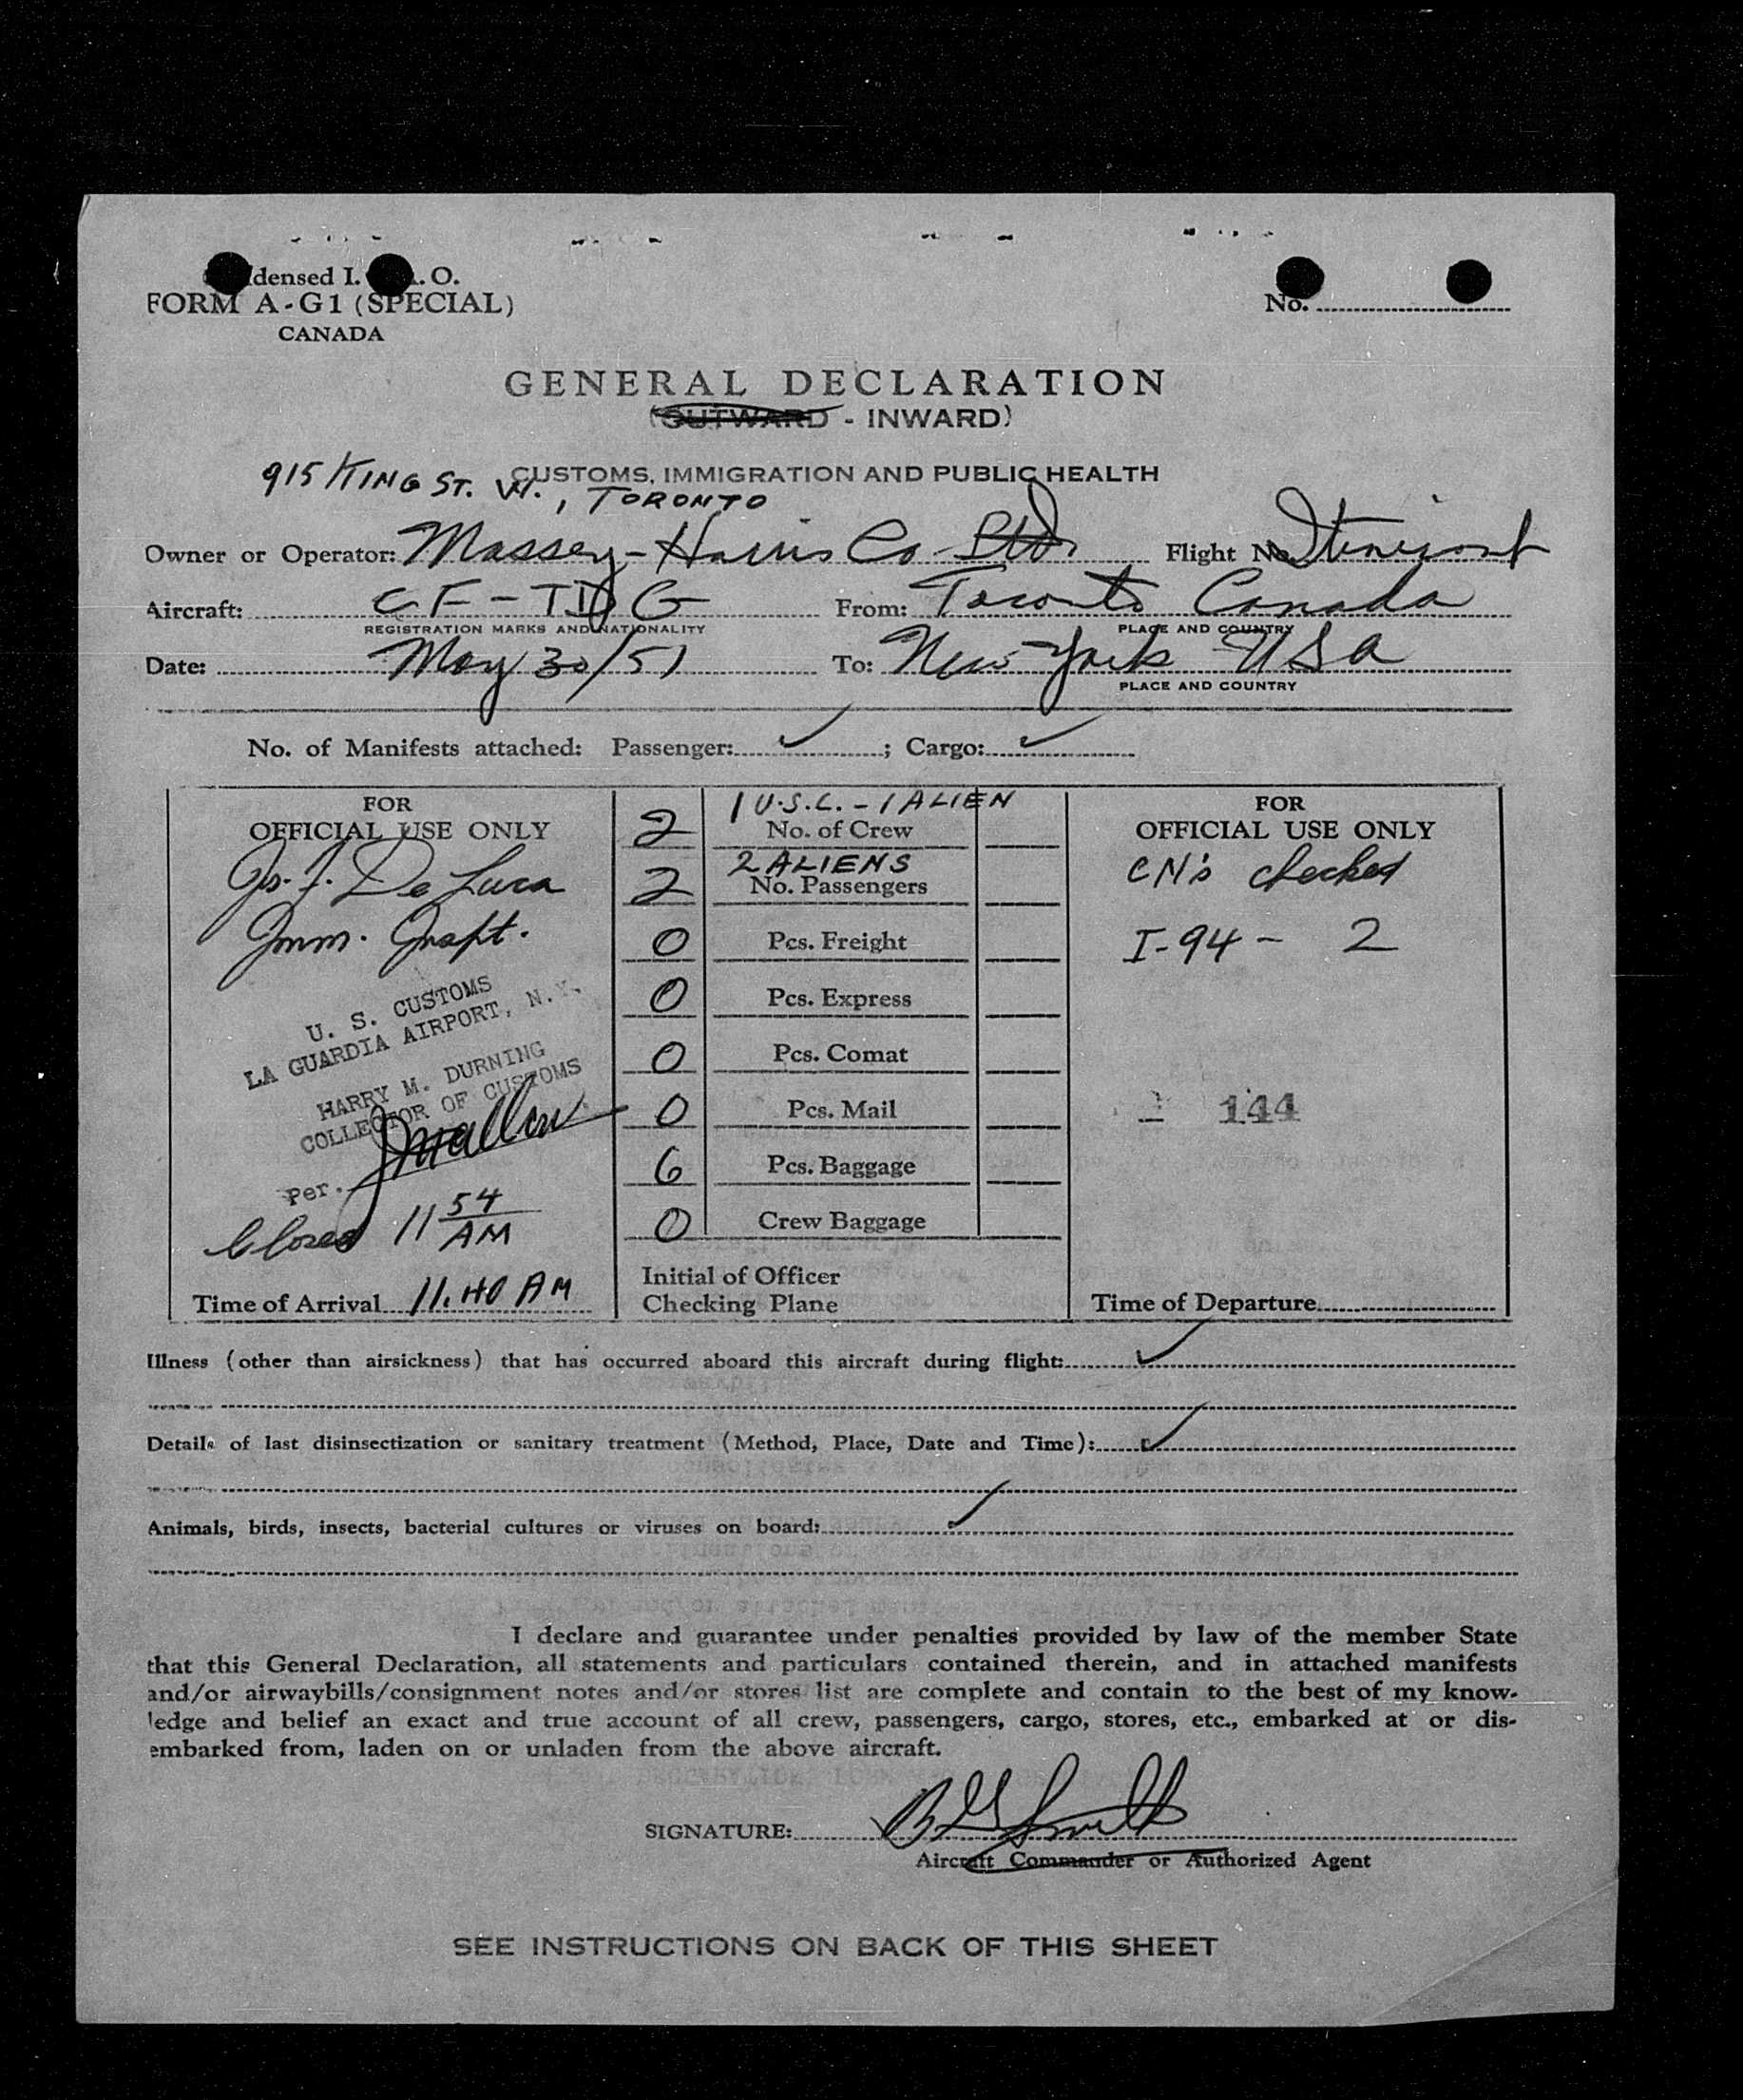 densed I. .O.
FORM A-G1 (SPECIAL)
CANADA
No.
GENERAL DECLARATION
(OUTWARD - INWARD)
CUSTOMS, IMMIGRATION AND PUBLIC HEALTH
915 KING ST. W., TORONTO
Owner or Operator: Massey-Harris Co Ltd. Flight No. Itinerant
Aircraft: CF-TDG From: Toronto Canada
REGISTRATION MARKS AND NATIONALITY PLACE AND COUNTRY
Date: May 30/51 To: New York USA
PLACE AND COUNTRY
No. of Manifests attached: Passenger: ✓ ; Cargo: ✓
FOR
OFFICIAL USE ONLY
De Luca
Imm. Inspt.
U. S. CUSTOMS
LA GUARDIA AIRPORT, N.Y.
HARRY M. DURNING
COLLECTOR OF CUSTOMS
Per.
Closed 11 54 AM
Time of Arrival 11.40 AM
1 U.S.C. - 1 ALIEN
2 No. of Crew
2 ALIENS
2 No. Passengers
0 Pcs. Freight
0 Pcs. Express
0 Pcs. Comat
0 Pcs. Mail
6 Pcs. Baggage
0 Crew Baggage
Initial of Officer
Checking Plane
FOR
OFFICIAL USE ONLY
CN's checked
I-94 - 2
144
Time of Departure
Illness (other than airsickness) that has occurred aboard this aircraft during flight: ✓
Details of last disinsectization or sanitary treatment (Method, Place, Date and Time): ✓
Animals, birds, insects, bacterial cultures or viruses on board: ✓
I declare and guarantee under penalties provided by law of the member State
that this General Declaration, all statements and particulars contained therein, and in attached manifests
and/or airwaybills/consignment notes and/or stores list are complete and contain to the best of my know-
ledge and belief an exact and true account of all crew, passengers, cargo, stores, etc., embarked at or dis-
embarked from, laden on or unladen from the above aircraft.
SIGNATURE: B G Smith
Aircraft Commander or Authorized Agent
SEE INSTRUCTIONS ON BACK OF THIS SHEET